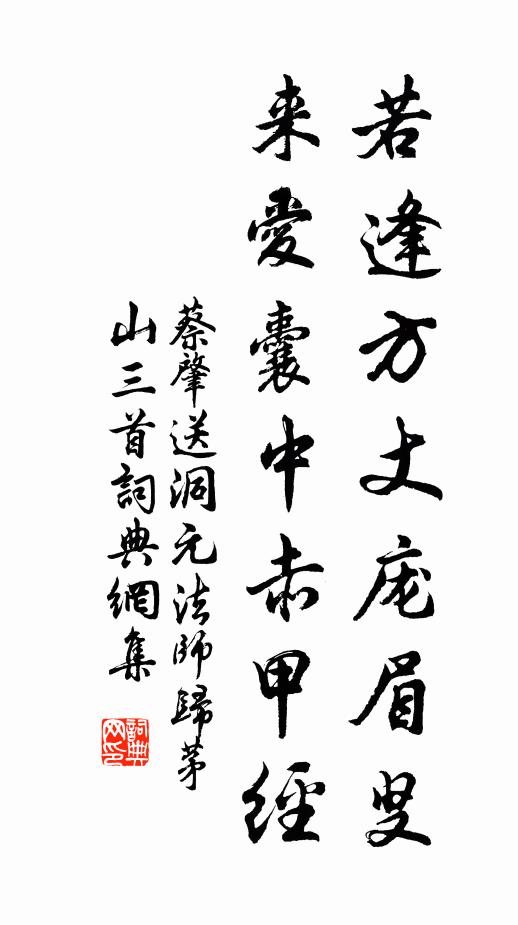 若逢方丈庞眉叟
来爱囊中赤甲经
蔡肇送洞元法師歸茅
山三首詞典網集
詞典网印